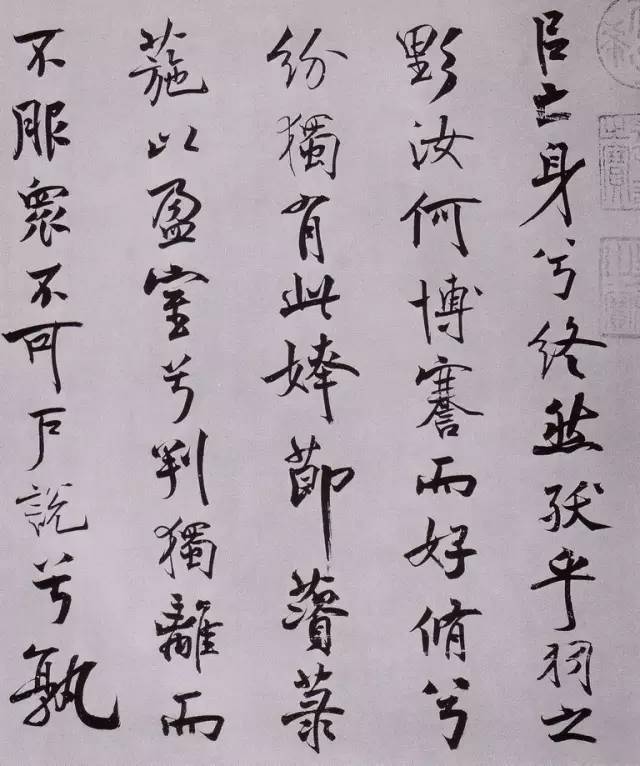 以亡身兮終然殀乎羽之
野汝何博謇而好脩兮
紛獨有此姱節薋菉
葹以盈室兮判獨離而
不服衆不可戶說兮孰